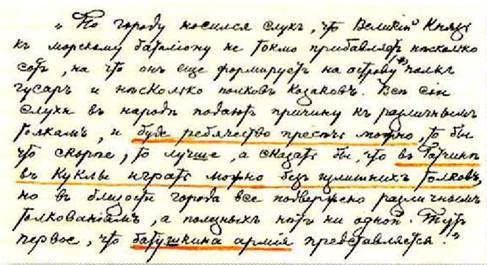 „По городу носился слухъ, что Великій Князь
къ морскому баталіону не токмо прибавляетъ нѣсколько
сотъ, но что онъ еще формируетъ на острову полкъ
гусаръ и нѣсколько полковъ Козаковъ. Всѣ сіи
слухи въ народѣ подаютъ причину къ различнымъ
толкамъ, и буде ребячество пресѣчь можно, то бы
что скорѣе, то лучше, а сказать бы, что въ Гатчинѣ
въ куклы играть можно безъ излишнихъ толковъ,
но въ близости города все подвержено различнымъ
толкованіямъ, а полезныхъ нѣтъ ни одной. Тутъ
первое, что батушкина армія представляется."